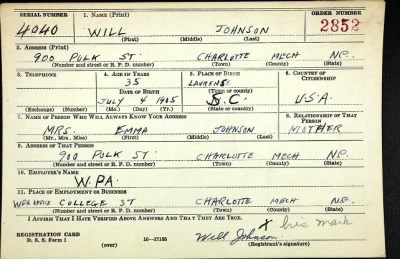 SERIAL NUMBER 1. NAME (Print) ORDER NUMBER
4040 WILL JOHNSON 2852
(First) (Middle) (Last)
2. ADDRESS (Print)
900 POLK ST. CHARLOTTE MECH N.C.
(Number and street or R. F. D. number) (Town) (County) (State)
3. TELEPHONE 4. AGE IN YEARS 5. PLACE OF BIRTH 6. COUNTRY OF CITIZENSHIP
35 LAURENSE
DATE OF BIRTH (Town or county)
JULY 4 1905 S.C. U.S.A
(Exchange) (Number) (Mo.) (Day) (Yr.) (State or country)
7. NAME OF PERSON WHO WILL ALWAYS KNOW YOUR ADDRESS 8. RELATIONSHIP OF THAT PERSON
MRS. EMMA JOHNSON MOTHER
(Mr., Mrs., Miss) (First) (Middle) (Last)
9. ADDRESS OF THAT PERSON
900 POLK ST. CHARLOTTE MECH N.C.
(Number and street or R. F. D. number) (Town) (County) (State)
10. EMPLOYER'S NAME
W.P.A.
11. PLACE OF EMPLOYMENT OR BUSINESS
WPA OFFICE COLLEGE ST CHARLOTTE MECH N.C.
(Number and street or R. F. D. number) (Town) (County) (State)
I AFFIRM THAT I HAVE VERIFIED ABOVE ANSWERS AND THAT THEY ARE TRUE.
REGISTRATION CARD
D. S. S. Form 1 16—17105 Will Johnson X his mark
(over) (Registrant's signature)